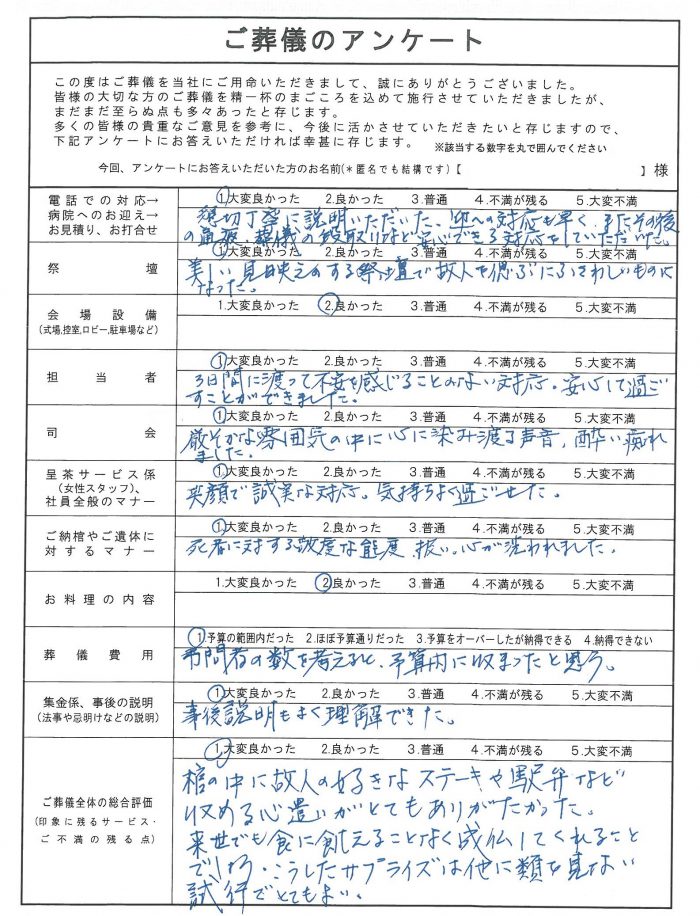 ご葬儀のアンケート
この度はご葬儀を当社にご用命いただきまして、誠にありがとうございました。
皆様の大切な方のご葬儀を精一杯のまごころを込めて施行させていただきましたが、
まだまだ至らぬ点も多々あったと存じます。
多くの皆様の貴重なご意見を参考に、今後に活かさせていただきたいと存じますので、
下記アンケートにお答えいただければ幸甚に存じます。 ※該当する数字を丸で囲んでください
今回、アンケートにお答えいただいた方のお名前(*匿名でも結構です)【 】様
電話での対応→
病院へのお迎え→
お見積り、お打合せ
1.大変良かった 2.良かった 3.普通 4.不満が残る 5.大変不満
親切丁寧に説明いただいた、急への対応も早く、またその後
の通夜、葬儀の段取りなど安心できる対応をしていただいた。
祭壇
1.大変良かった 2.良かった 3.普通 4.不満が残る 5.大変不満
美しい見映えのする祭壇で故人を偲ぶにふさわしいものに
なった。
会場設備
(式場,控室,ロビー,駐車場など)
1.大変良かった 2.良かった 3.普通 4.不満が残る 5.大変不満
担当者
1.大変良かった 2.良かった 3.普通 4.不満が残る 5.大変不満
3日間に渡って不安を感じることのない対応。安心して過ご
すことができました。
司会
1.大変良かった 2.良かった 3.普通 4.不満が残る 5.大変不満
厳そかな雰囲気の中に心に染み渡る声音、酔い痴れ
ました。
呈茶サービス係
(女性スタッフ)、
社員全般のマナー
1.大変良かった 2.良かった 3.普通 4.不満が残る 5.大変不満
笑顔で誠実な対応。気持ちよく過ごせた。
ご納棺やご遺体に
対するマナー
1.大変良かった 2.良かった 3.普通 4.不満が残る 5.大変不満
死者に対する敬虔な態度、扱い。心が洗われました。
お料理の内容
1.大変良かった 2.良かった 3.普通 4.不満が残る 5.大変不満
葬儀費用
1.予算の範囲内だった 2.ほぼ予算通りだった 3.予算をオーバーしたが納得できる 4.納得できない
弔問者の数を考えると、予算内に収まったと思う。
集金係、事後の説明
(法事や忌明けなどの説明)
1.大変良かった 2.良かった 3.普通 4.不満が残る 5.大変不満
事後説明もよく理解できた。
ご葬儀全体の総合評価
(印象に残るサービス・
ご不満の残る点)
1.大変良かった 2.良かった 3.普通 4.不満が残る 5.大変不満
棺の中に故人の好きなステーキや駅弁など
収める心遣いがとてもありがたかった。
来世でも食に飢えることなく成仏してくれること
でしょう。こうしたサプライズは他に類を見ない
試行でとてもよい。